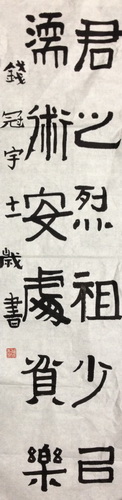 君之烈祖少以
濡術安處貧樂
錢冠宇十一歲書